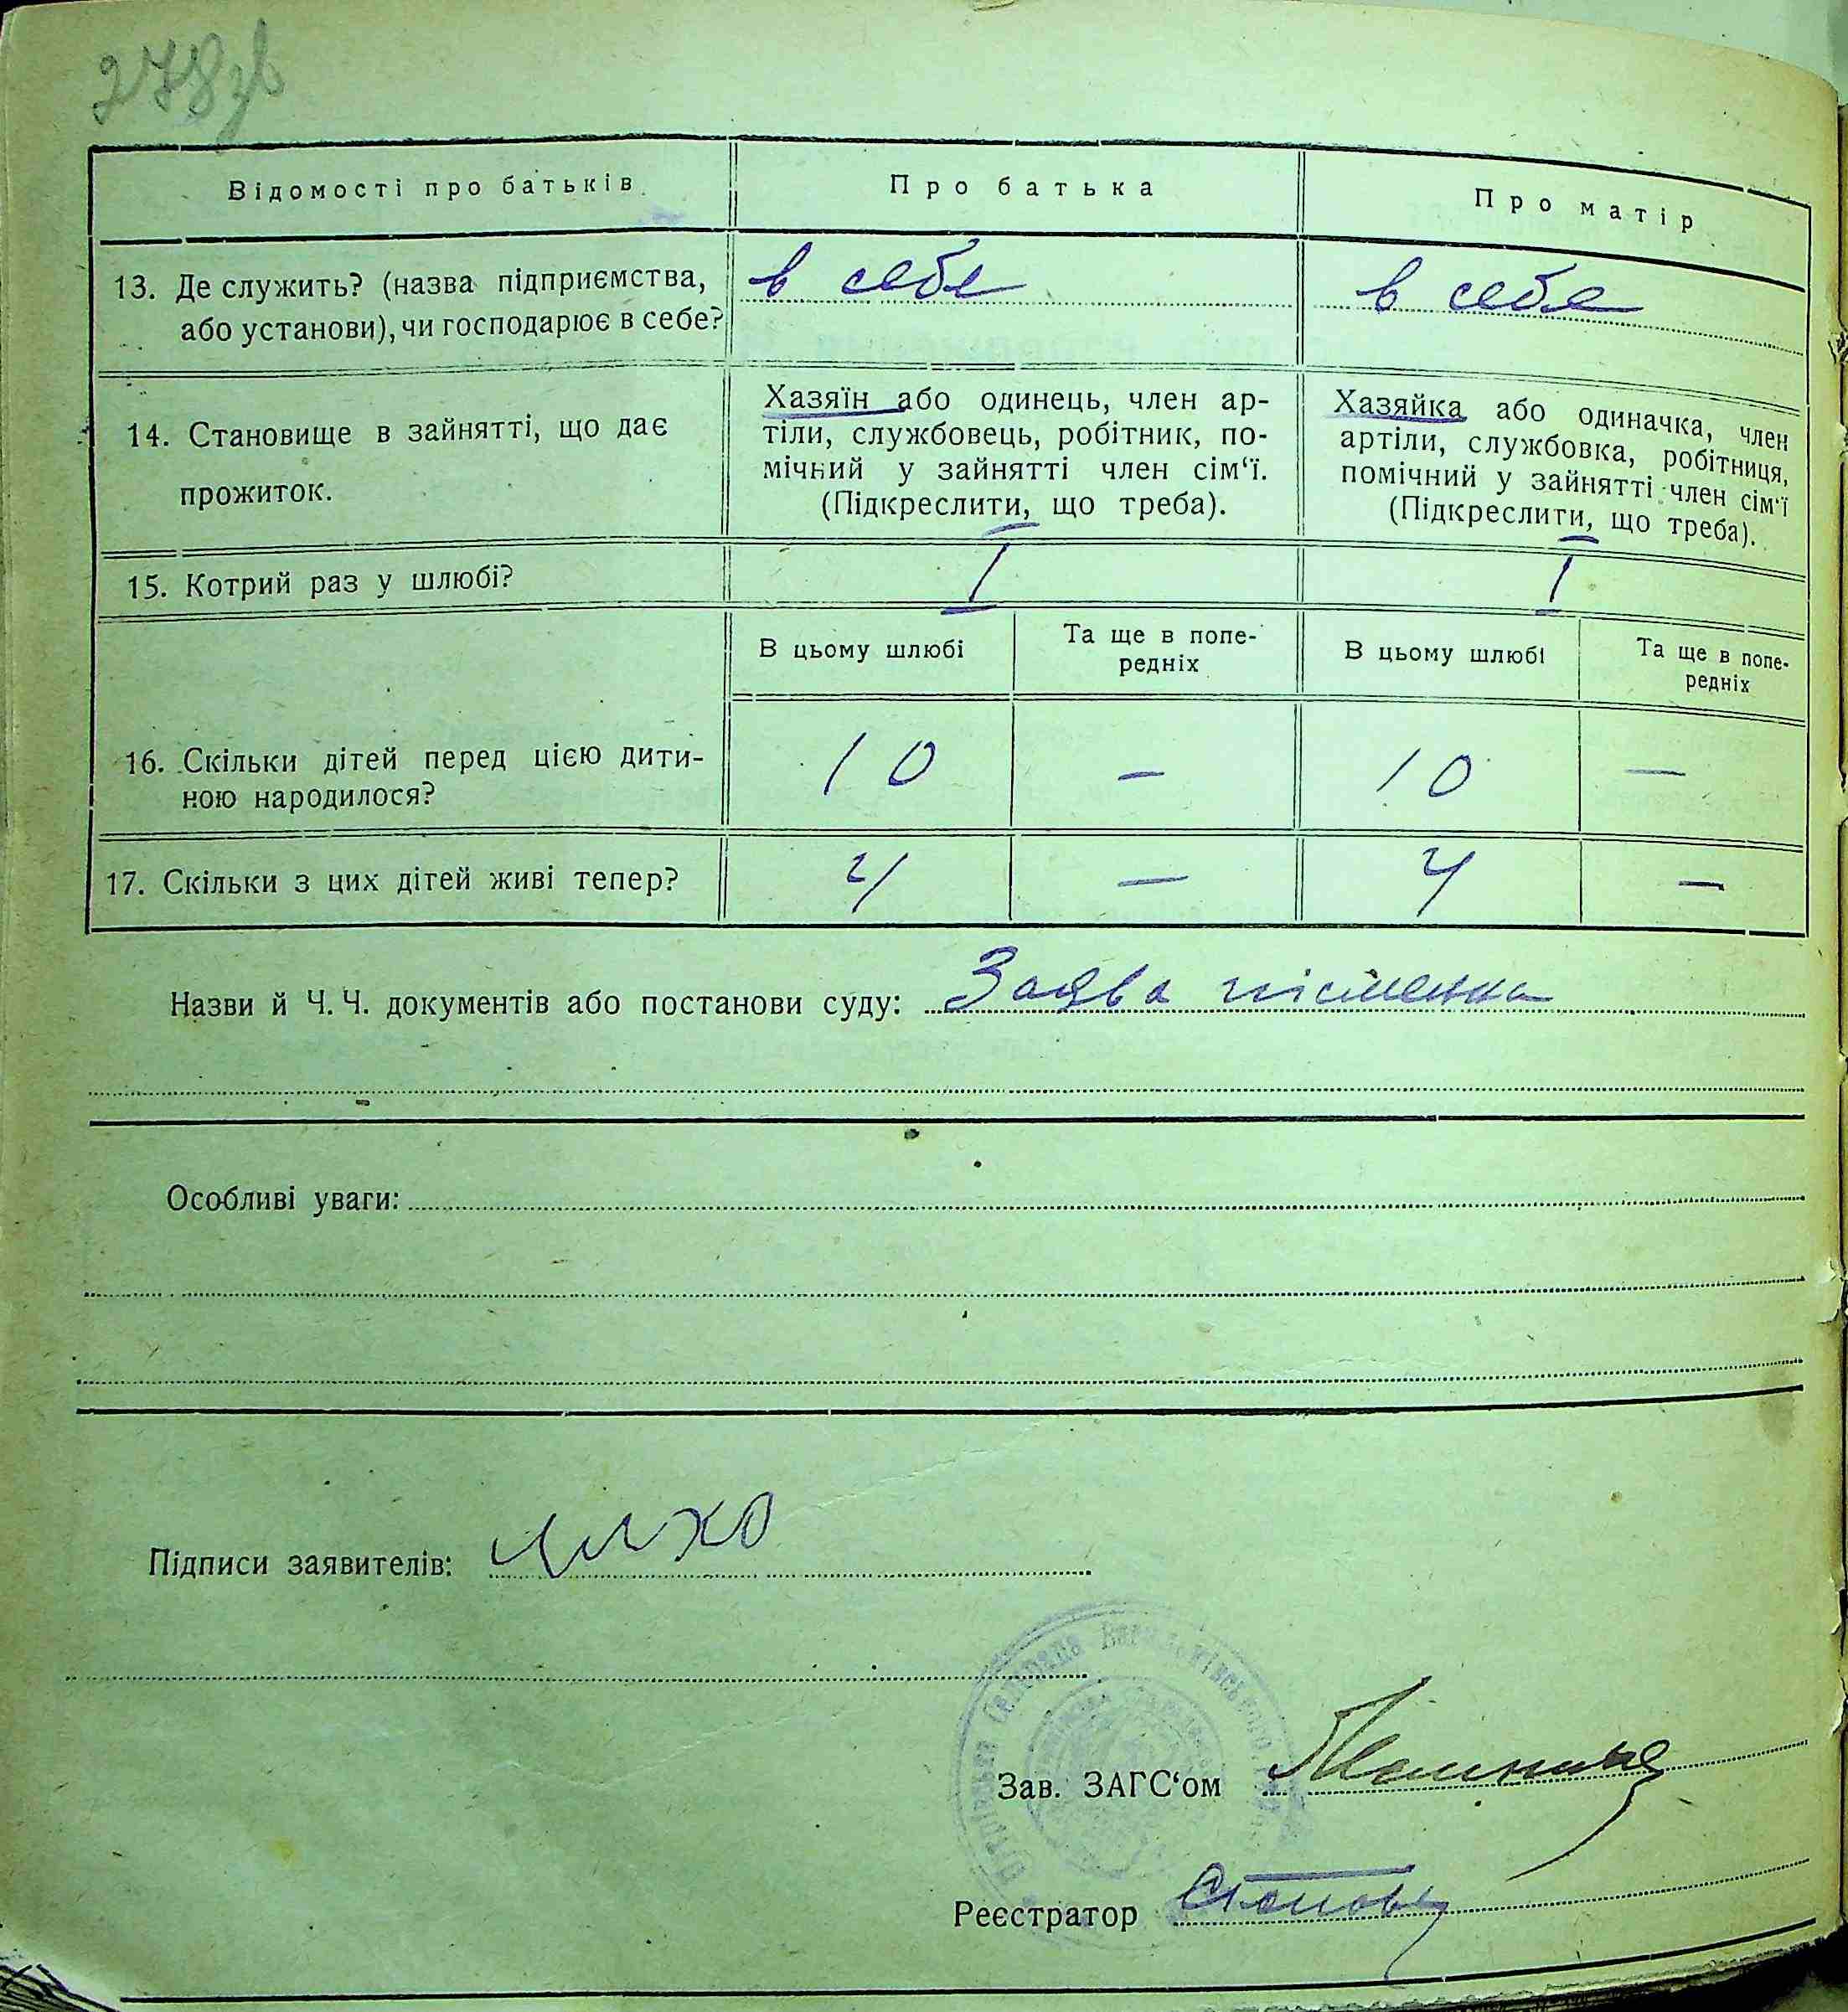 278зв
Відомості про батьків
Про батька
Про матір
13. Де служить? (назва підприємства,
або установи), чи господарює в себе?
в себе
в себе
14. Становище в зайнятті, що дає
прожиток.
Хазяїн або одинець, член ар-
тіли, службовець, робітник, по-
мічний у зайнятті член сім‘ї.
(Підкреслити, що треба).
Хазяйка або одиначка, член
артіли, службовка, робітниця,
помічний у зайнятті член сім‘ї
(Підкреслити, що треба).
15. Котрий раз у шлюбі?
I
I
В цьому шлюбі
Та ще в попе-
редніх
В цьому шлюбі
Та ще в попе-
редніх
16. Скільки дітей перед цією дити-
ною народилося?
10
—
10
—
17. Скільки з цих дітей живі тепер?
4
—
4
—
Назви й Ч. Ч. документів або постанови суду: Заява пісменна
Особливі уваги:
Підписи заявителів:
Зав. ЗАГС‘ом
Реєстратор